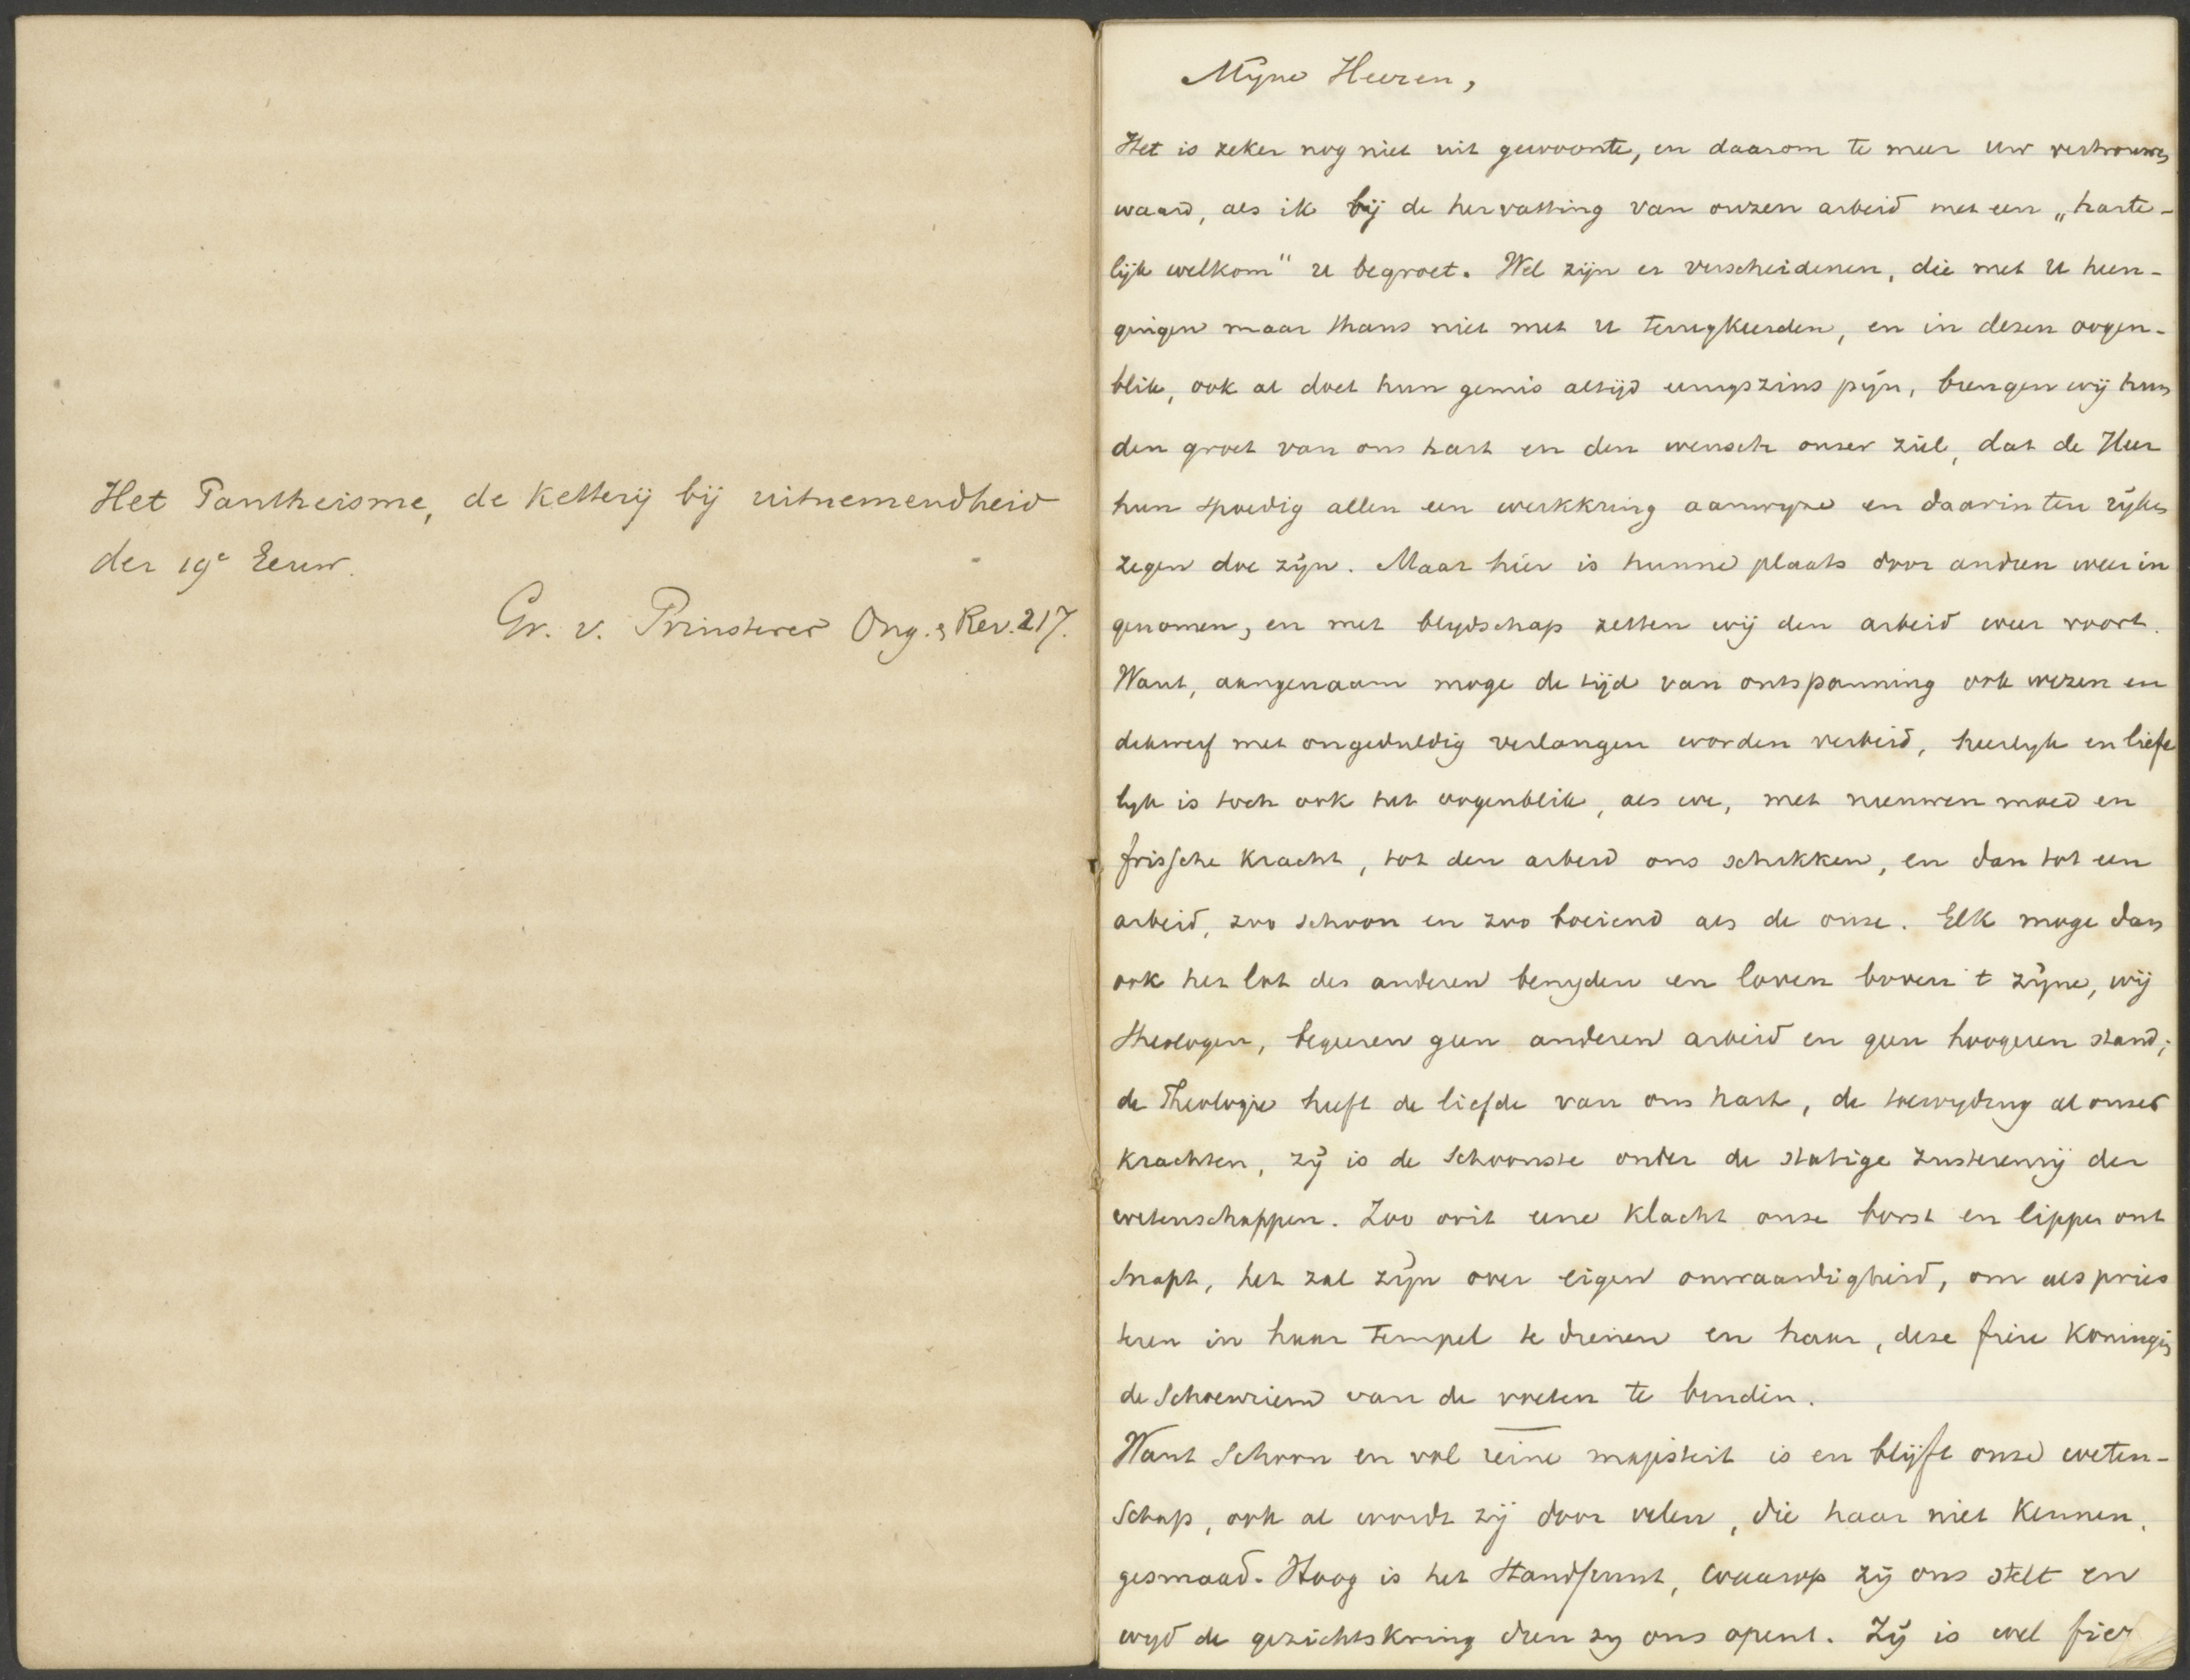 Het Pantheisme, de Ketterij bij uitnemendheid
der 19e Eeuw.
Gr. v. Prinsterer Ong. & Rev. 217.
Mijne Heeren,
Het is zeker nog niet uit gewoonte, en daarom te meer uw vertrouwen
waard, als ik bij de hervatting van onzen arbeid met een „harte-
lijk welkom" u begroet. Wel zijn er verscheidenen, die met U heen-
gingen maar thans niet met u terugkeerden, en in dezen oogen-
blik, ook al doet hun gemis altijd eenigszins pijn, brengen wij hun
den groet van ons hart en den wensch onzer ziel, dat de Heer
hun spoedig allen een werkkring aanwijze en daarin ten rijken
zegen doe zijn. Maar hier is hunne plaats door andren weer in
genomen, en met blijdschap zetten wij den arbeid weer voort.
Want, aangenaam moge de tijd van ontspanning ook wezen en
dikwerf met ongeduldig verlangen worden verbeid, heerlijk en liefe
lijk is toch ook het oogenblik, als we, met nieuwen moed en
frissche kracht, tot den arbeid ons schikken, en dan tot een
arbeid, zoo schoon en zoo boeiend als de onze. Elk moge dan
ook het lot des anderen benijden en loven boven 't zijne, wij
theologen, begeeren geen anderen arbeid en geen hoogeren stand;
de Theologie heeft de liefde van ons hart, de toewijding al onzer
krachten, zij is de schoonste onder de statige zusterenrij der
wetenschappen. Zoo ooit eene klacht onze borst en lippen ont
snapt, het zal zijn over eigen onwaardigheid, om als pries
teren in haar tempel te dienen en haar, deze fiere Koningin
de schoenriem van de voeten te binden.
Want schoon en vol reine majesteit is en blijft onze weten-
schap, ook al wordt zij door velen, die haar niet kennen,
gesmaad. Hoog is het standpunt, waarop zij ons stelt en
wijd de gezichtskring dien zij ons opent. Zij is wel fier